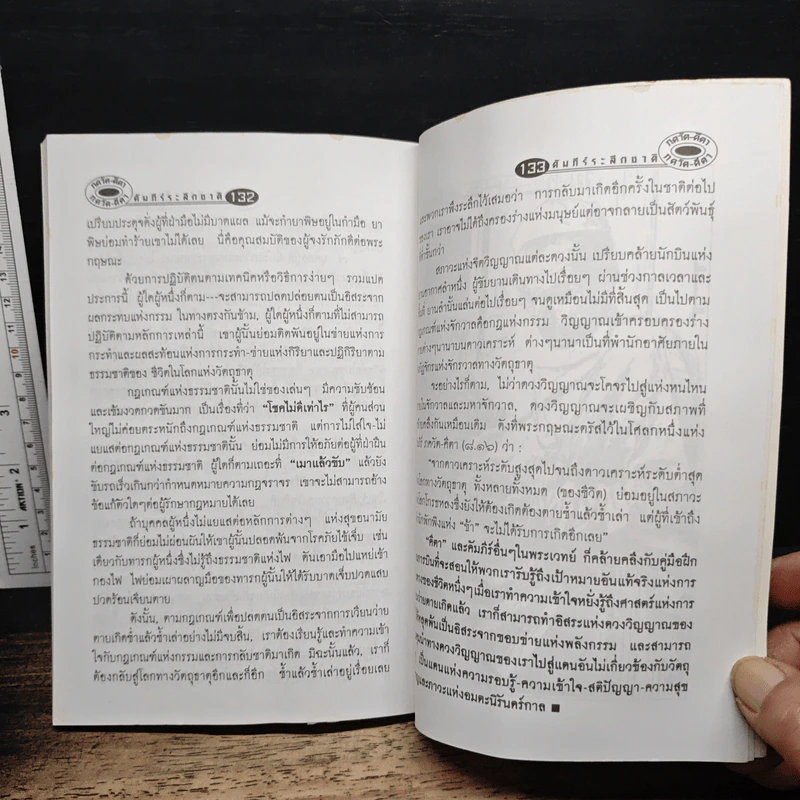 ภควัต-คีตา
ภควัต-คีตา
คัมภีร์ระลึกชาติ 132
เปรียบประดุจดั่งผู้ที่ฝ่ามือไม่มีบาดแผล แม้จะกำยาพิษอยู่ในกำมือ ยา
พิษย่อมทำร้ายเขาไม่ได้เลย นี่คือคุณสมบัติของผู้จงรักภักดีต่อพระ
กฤษณะ
ด้วยการปฏิบัติตนตามเทคนิคหรือวิธีการง่ายๆ รวมแปด
ประการนี้ ผู้ใดผู้หนึ่งก็ตาม---จะสามารถปลดปล่อยตนเป็นอิสระจาก
ผลกระทบแห่งกรรม ในทางตรงกันข้าม, ผู้ใดผู้หนึ่งก็ตามที่ไม่สามารถ
ปฏิบัติตามหลักการเหล่านี้ เขาผู้นั้นย่อมติดพันอยู่ในข่ายแห่งการ
กระทำและผลสะท้อนแห่งการกระทำ-ข่ายแห่งกิริยาและปฏิกิริยาตาม
ธรรมชาติของ ชีวิตในโลกแห่งวัตถุธาตุ
กฎเกณฑ์แห่งธรรมชาตินั้นไม่ใช่ของเล่นๆ มีความซับซ้อน
และเข้มงวดกวดขันมาก เป็นเรื่องที่ว่า "โชคไม่ดีเท่าไร" ที่ผู้คนส่วน
ใหญ่ไม่ค่อยตระหนักถึงกฎเกณฑ์แห่งธรรมชาติ แต่การไม่ใส่ใจ-ไม่
แยแสต่อกฎเกณฑ์แห่งธรรมชาตินั้น ย่อมไม่มีการให้อภัยต่อผู้ที่ฝ่าฝืน
ต่อกฎเกณฑ์แห่งธรรมชาติ ผู้ใดก็ตามเถอะที่ "เมาแล้วขับ" แล้วยัง
ขับรถเร็วเกินกว่ากำหนดหมายความกฎจราจร เขาจะไม่สามารถอ้าง
ข้อแก้ตัวใดๆต่อผู้รักษากฎหมายได้เลย
ถ้าบุคคลผู้หนึ่งไม่แยแสต่อหลักการต่างๆ แห่งสุขอนามัย
ธรรมชาติก็ย่อมไม่ผ่อนผันให้เขาผู้นั้นปลอดพ้นจากโรคภัยไข้เจ็บ เช่น
เดียวกับทารกผู้หนึ่งซึ่งไม่รู้ถึงธรรมชาติแห่งไฟ ดันเอามือไปแหย่เข้า
กองไฟ ไฟย่อมเผาผลาญมือของทารกผู้นั้นให้ได้รับบาดเจ็บปวดแสบ
ปวดร้อนเจียนตาย
ดังนั้น, ตามกฎเกณฑ์เพื่อปลดตนเป็นอิสระจากการเวียนว่าย
ตายเกิดซ้ำแล้วซ้ำเล่าอย่างไม่มีจบสิ้น, เราต้องเรียนรู้และทำความเข้า
ใจกับกฎเกณฑ์แห่งกรรมและการกลับชาติมาเกิด มิฉะนั้นแล้ว, เราก็
ต้องกลับสู่โลกทางวัตถุธาตุอีกและก็อีก ซ้ำแล้วซ้ำเล่าอยู่เรื่อยเลย
133 คัมภีร์ระลึกชาติ
ภควัต-คีตา
ภควัต-คีตา
และพวกเราพึงระลึกไว้เสมอว่า การกลับมาเกิดอีกครั้งในชาติต่อไป
ของเรา เราอาจไม่ได้ถึงครองร่างแห่งมนุษย์แต่อาจกลายเป็นสัตว์พันธุ์
ต่ำชั้นกว่า
สภาวะแห่งจิตวิญญาณแต่ละดวงนั้น เปรียบคล้ายนักบินแห่ง
อวกาศลำหนึ่ง ผู้ขับยานเดินทางไปเรื่อยๆ ผ่านช่วงกาลเวลาและ
ที่ ยานลำนั้นแล่นต่อไปเรื่อยๆ จนดูเหมือนไม่มีที่สิ้นสุด เป็นไปตาม
กฎเกณฑ์แห่งจักรวาลคือกฎแห่งกรรม วิญญาณเข้าครอบครองร่าง
ต่างๆนานาบนดาวเคราะห์ ต่างๆนานาเป็นที่พำนักอาศัยภายใน
จักรแห่งจักรวาลทางวัตถุธาตุ
จะอย่างไรก็ตาม, ไม่ว่าดวงวิญญาณจะโคจรไปสู่แห่งหนไหน
ภายในจักรวาลและมหาจักรวาล, ดวงวิญญาณจะเผชิญกับสภาพที่
คล้ายคลึงกันเหมือนเดิม ดังที่พระกฤษณะตรัสไว้ในโศลกหนึ่งแห่ง
ภควัต-คีตา (๘.๑๖) ว่า :
"จากดาวเคราะห์ระดับสูงสุดไปจนถึงดาวเคราะห์ระดับต่ำสุด
โลกทางวัตถุธาตุ ทั้งหลายทั้งหมด (ของชีวิต) ย่อมอยู่ในสภาวะ
โลกโกรธหลงซึ่งยังให้ต้องเกิดต้องตายซ้ำแล้วซ้ำเล่า แต่ผู้ที่เข้าถึง
พักพิงแห่ง "ข้า" จะไม่ได้รับการเกิดอีกเลย"
"คีตา" และคัมภีร์อื่นๆในพระเวทย์ ก็คล้ายคลึงกับคู่มือฝึก
การบินที่จะสอนให้พวกเรารับรู้ถึงเป้าหมายอันแท้จริงแห่งการ
ทางของชีวิตหนึ่งๆเมื่อเราทำความเข้าใจหยั่งรู้ถึงศาสตร์แห่งการ
ว่ายตายเกิดแล้ว เราก็สามารถทำอิสระแห่งดวงวิญญาณของ
หลุดพ้นเป็นอิสระจากขอบข่ายแห่งพลังกรรม และสามารถ
นำทางดวงวิญญาณของเราไปสู่แดนอันไม่เกี่ยวข้องกับวัตถุ
เป็นแดนแห่งความรอบรู้-ความเข้าใจ-สติปัญญา-ความสุข
และภาวะแห่งอมตะนิรันดร์กาล ■